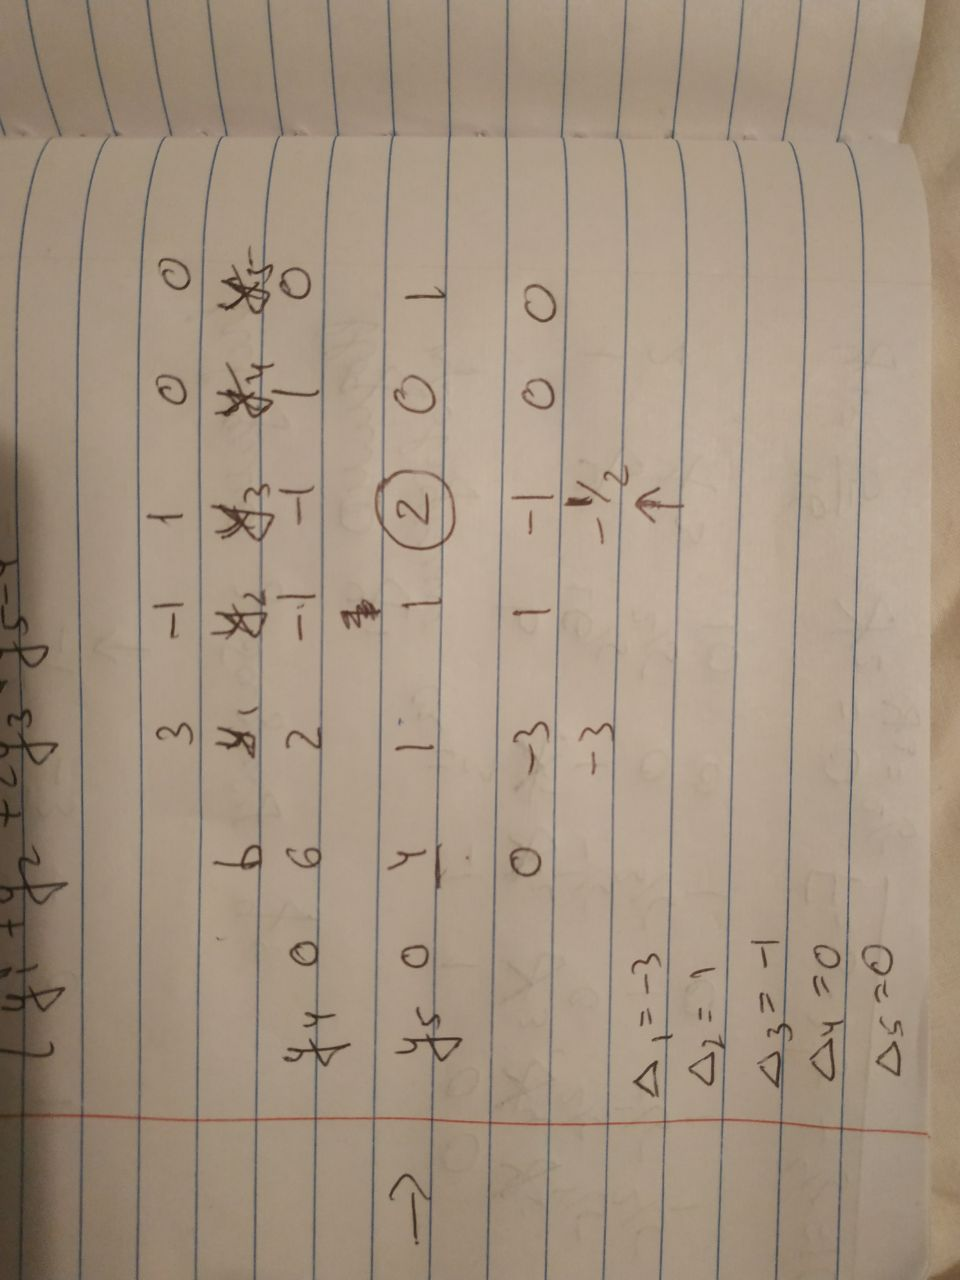 y1 + y2 + 2y3 + y5 = 4
3 -1 1 0 0
b y1 y2 y3 y4 y5
y4 0 6 2 -1 -1 1 0
→ y5 0 4 1 1 2 0 1
0 -3 1 -1 0 0
-3 -1/2
↑
Δ1 = -3
Δ2 = 1
Δ3 = -1
Δ4 = 0
Δ5 = 0